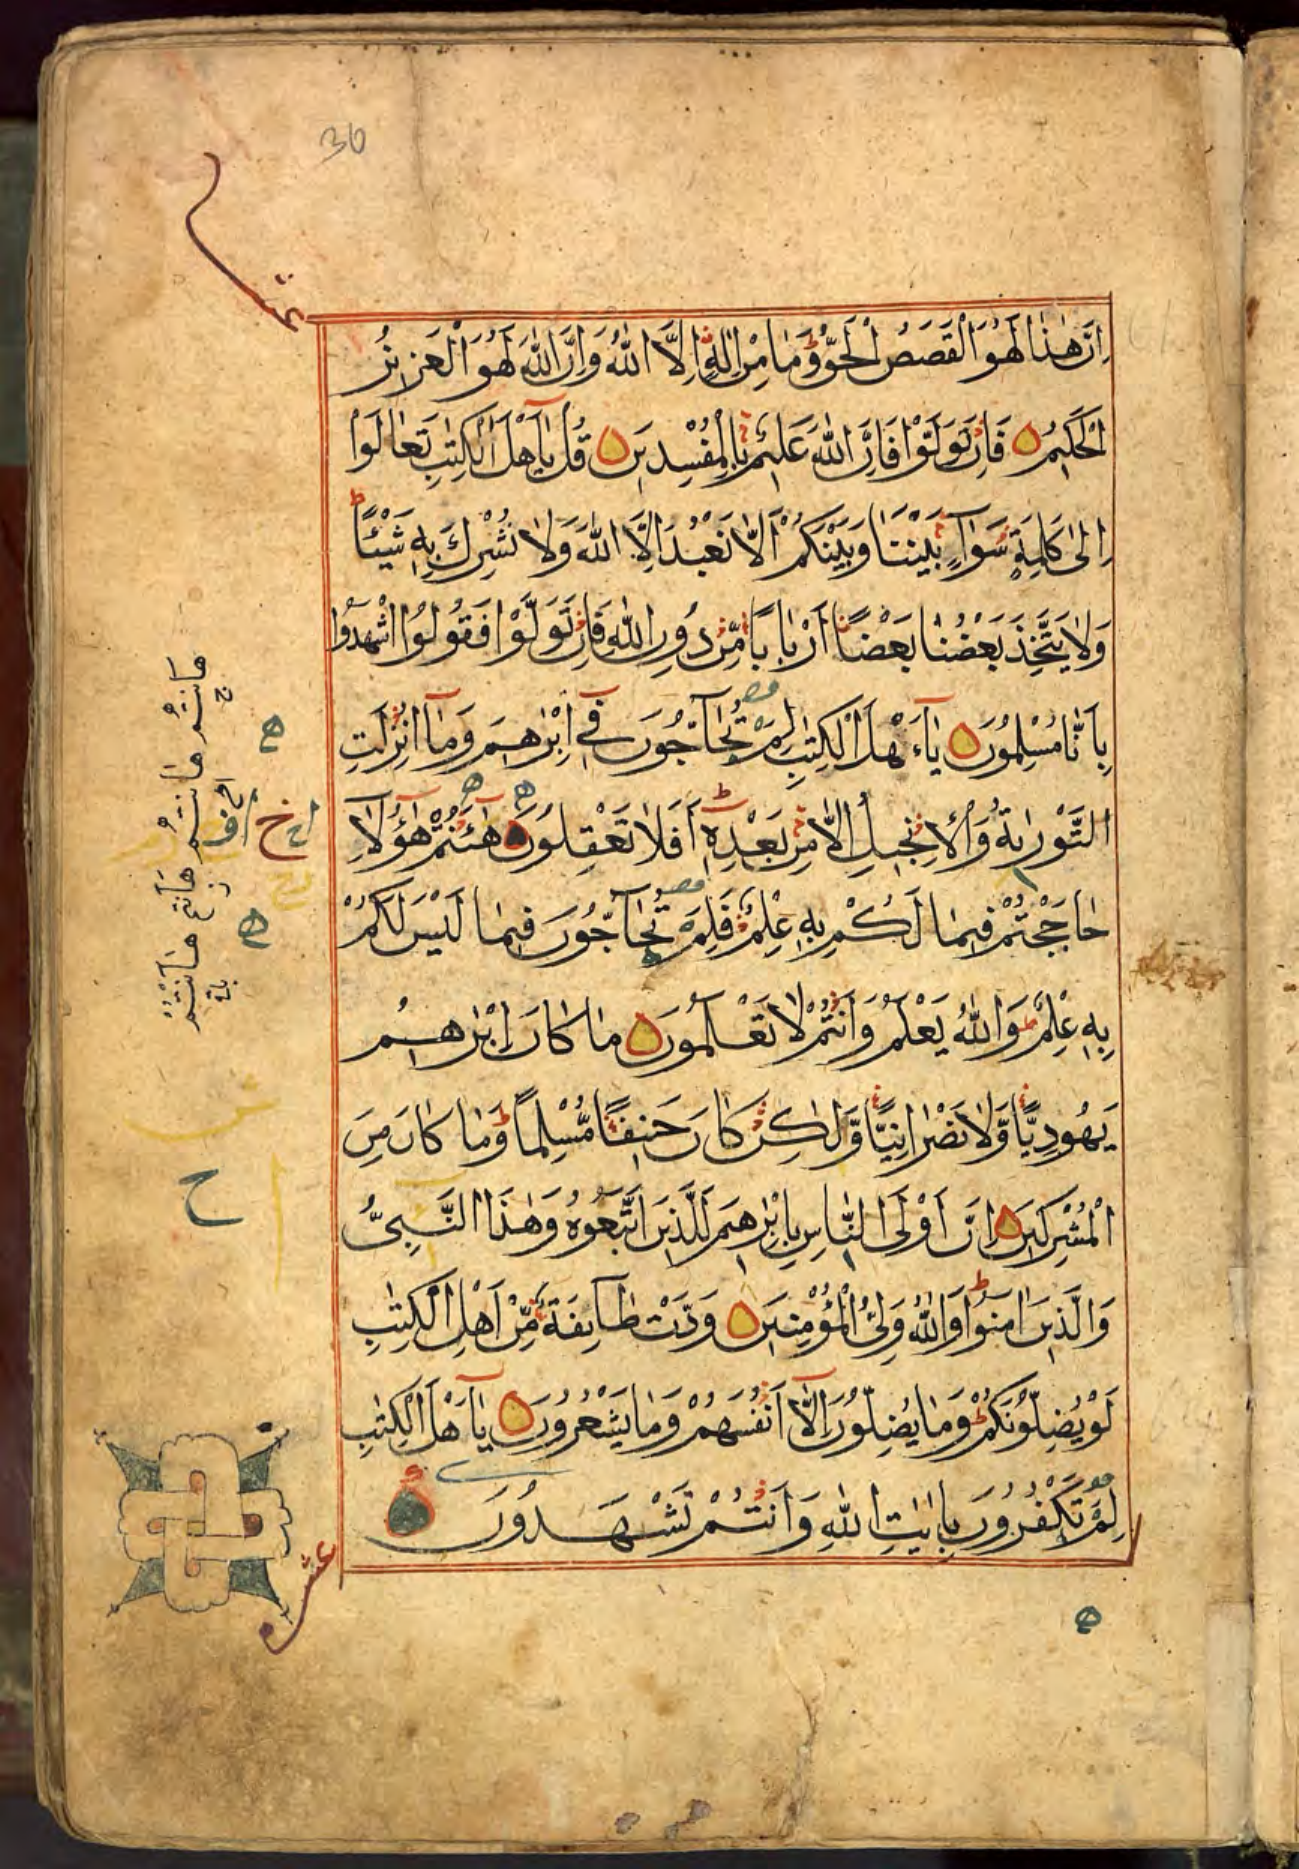 36
عشر
اِنَّ هٰذَا لَهُوَ الْقَصَصُ الْحَقُّ ۚ وَمَا مِنْ اِلٰهٍ اِلَّا اللّٰهُ وَاِنَّ اللّٰهَ لَهُوَ الْعَزٖيزُ
الْحَكٖيمُ فَاِنْ تَوَلَّوْا فَاِنَّ اللّٰهَ عَلٖيمٌ بِالْمُفْسِدٖينَ قُلْ يَآ اَهْلَ الْكِتٰبِ تَعَالَوْا
اِلٰى كَلِمَةٍ سَوَآءٍ بَيْنَنَا وَبَيْنَكُمْ اَلَّا نَعْبُدَ اِلَّا اللّٰهَ وَلَا نُشْرِكَ بِهٖ شَيْئًا ط
وَلَا يَتَّخِذَ بَعْضُنَا بَعْضًا اَرْبَابًا مِّنْ دُونِ اللّٰهِ فَاِنْ تَوَلَّوْا فَقُولُوا اشْهَدُوا
بِاَنَّا مُسْلِمُونَ يَآ اَهْلَ الْكِتٰبِ لِمَ تُحَآجُّونَ فٖيٓ اِبْرٰهٖيمَ وَمَآ اُنْزِلَتِ
التَّوْرٰيةُ وَالْاِنْجٖيلُ اِلَّا مِنْ بَعْدِهٖ ط اَفَلَا تَعْقِلُونَ هٰٓاَنْتُمْ هٰٓؤُلَآءِ
حَاجَجْتُمْ فٖيمَا لَكُمْ بِهٖ عِلْمٌ فَلِمَ تُحَآجُّونَ فٖيمَا لَيْسَ لَكُمْ
بِهٖ عِلْمٌ ط وَاللّٰهُ يَعْلَمُ وَاَنْتُمْ لَا تَعْلَمُونَ مَا كَانَ اِبْرٰهٖيمُ
يَهُودِيًّا وَّلَا نَصْرَانِيًّا وَّلٰكِنْ كَانَ حَنٖيفًا مُّسْلِمًا ط وَمَا كَانَ مِنَ
الْمُشْرِكٖينَ اِنَّ اَوْلَى النَّاسِ بِاِبْرٰهٖيمَ لَلَّذٖينَ اتَّبَعُوهُ وَهٰذَا النَّبِيُّ
وَالَّذٖينَ اٰمَنُوا ط وَاللّٰهُ وَلِيُّ الْمُؤْمِنٖينَ وَدَّتْ طَآئِفَةٌ مِّنْ اَهْلِ الْكِتٰبِ
لَوْ يُضِلُّونَكُمْ ط وَمَا يُضِلُّونَ اِلَّآ اَنْفُسَهُمْ وَمَا يَشْعُرُونَ يَآ اَهْلَ الْكِتٰبِ
لِمَ تَكْفُرُونَ بِاٰيٰتِ اللّٰهِ وَاَنْتُمْ تَشْهَدُونَ
عشر
ح
هاَنتم هاَنتم هاَنتم هاَنتم